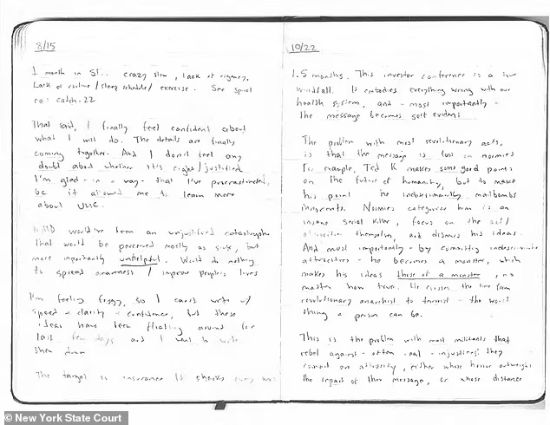 8/15
1 month in St.. crazy slim, lack of rigmey.
Lack of routine / sleep schedule / exercise. See spiral
re: catch-22
That said, I finally feel confident about
what I will do. The details are finally
coming together. And I don't feel any
doubt about whether it's right/justified.
I'm glad - in a way - that I've procrastinated,
bc it allowed me to learn more
about UHC.
would've been an unjustified catastrophe
that would be perceived mostly as sick, but
more importantly unhelpful. Would do nothing
to spread awareness / improve people's lives
I'm feeling foggy, so I can't write w/
speed + clarity + confidence, but these
ideas have been floating around for
last few days and I want to write
them down
The target is insurance. It checks every box
10/22
1.5 months. This investor conference is a true
windfall. It embodies everything wrong with our
health system, and - most importantly -
the message becomes self evident.
The problem with most revolutionary acts,
is that the message is lost on normies
For example, Ted K makes some good points
on the future of humanity, but to make
his point he indiscriminately mailbombs
innocents. Normies categorize him as an
insane serial killer, focus on the act/
atrocities themselves, and dismiss his ideas.
And most importantly - by committing indiscriminate
atrocities - he becomes a monster, which
makes his ideas those of a monster, no
matter how true. He crosses the line from
revolutionary anarchist to terrorist - the worst
thing a person can be.
This is the problem with most militants that
rebel against - often real - injustices: they
commit an atrocity, either whose horror outweighs
the impact of their message, or whose distance
© New York State Court